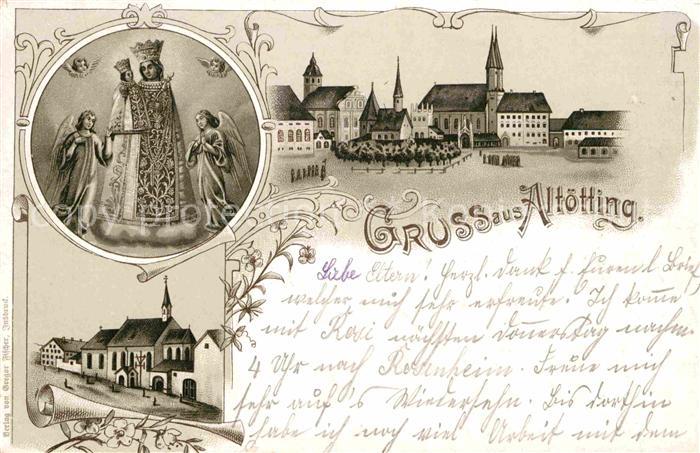 GRUSS aus Altötting.
Liebe Eltern! Herzl. Dank f. Euren l. Brief
welcher mich sehr erfreute. Ich komme
mit Rosi nächsten Donnerstag nachm
4 Uhr nach Rosenheim. Freue mich
sehr auf's Wiedersehn. Bis dorthin
habe ich noch viel Arbeit mit dem
Verlag von Gregor Fischer, Innsbruck.